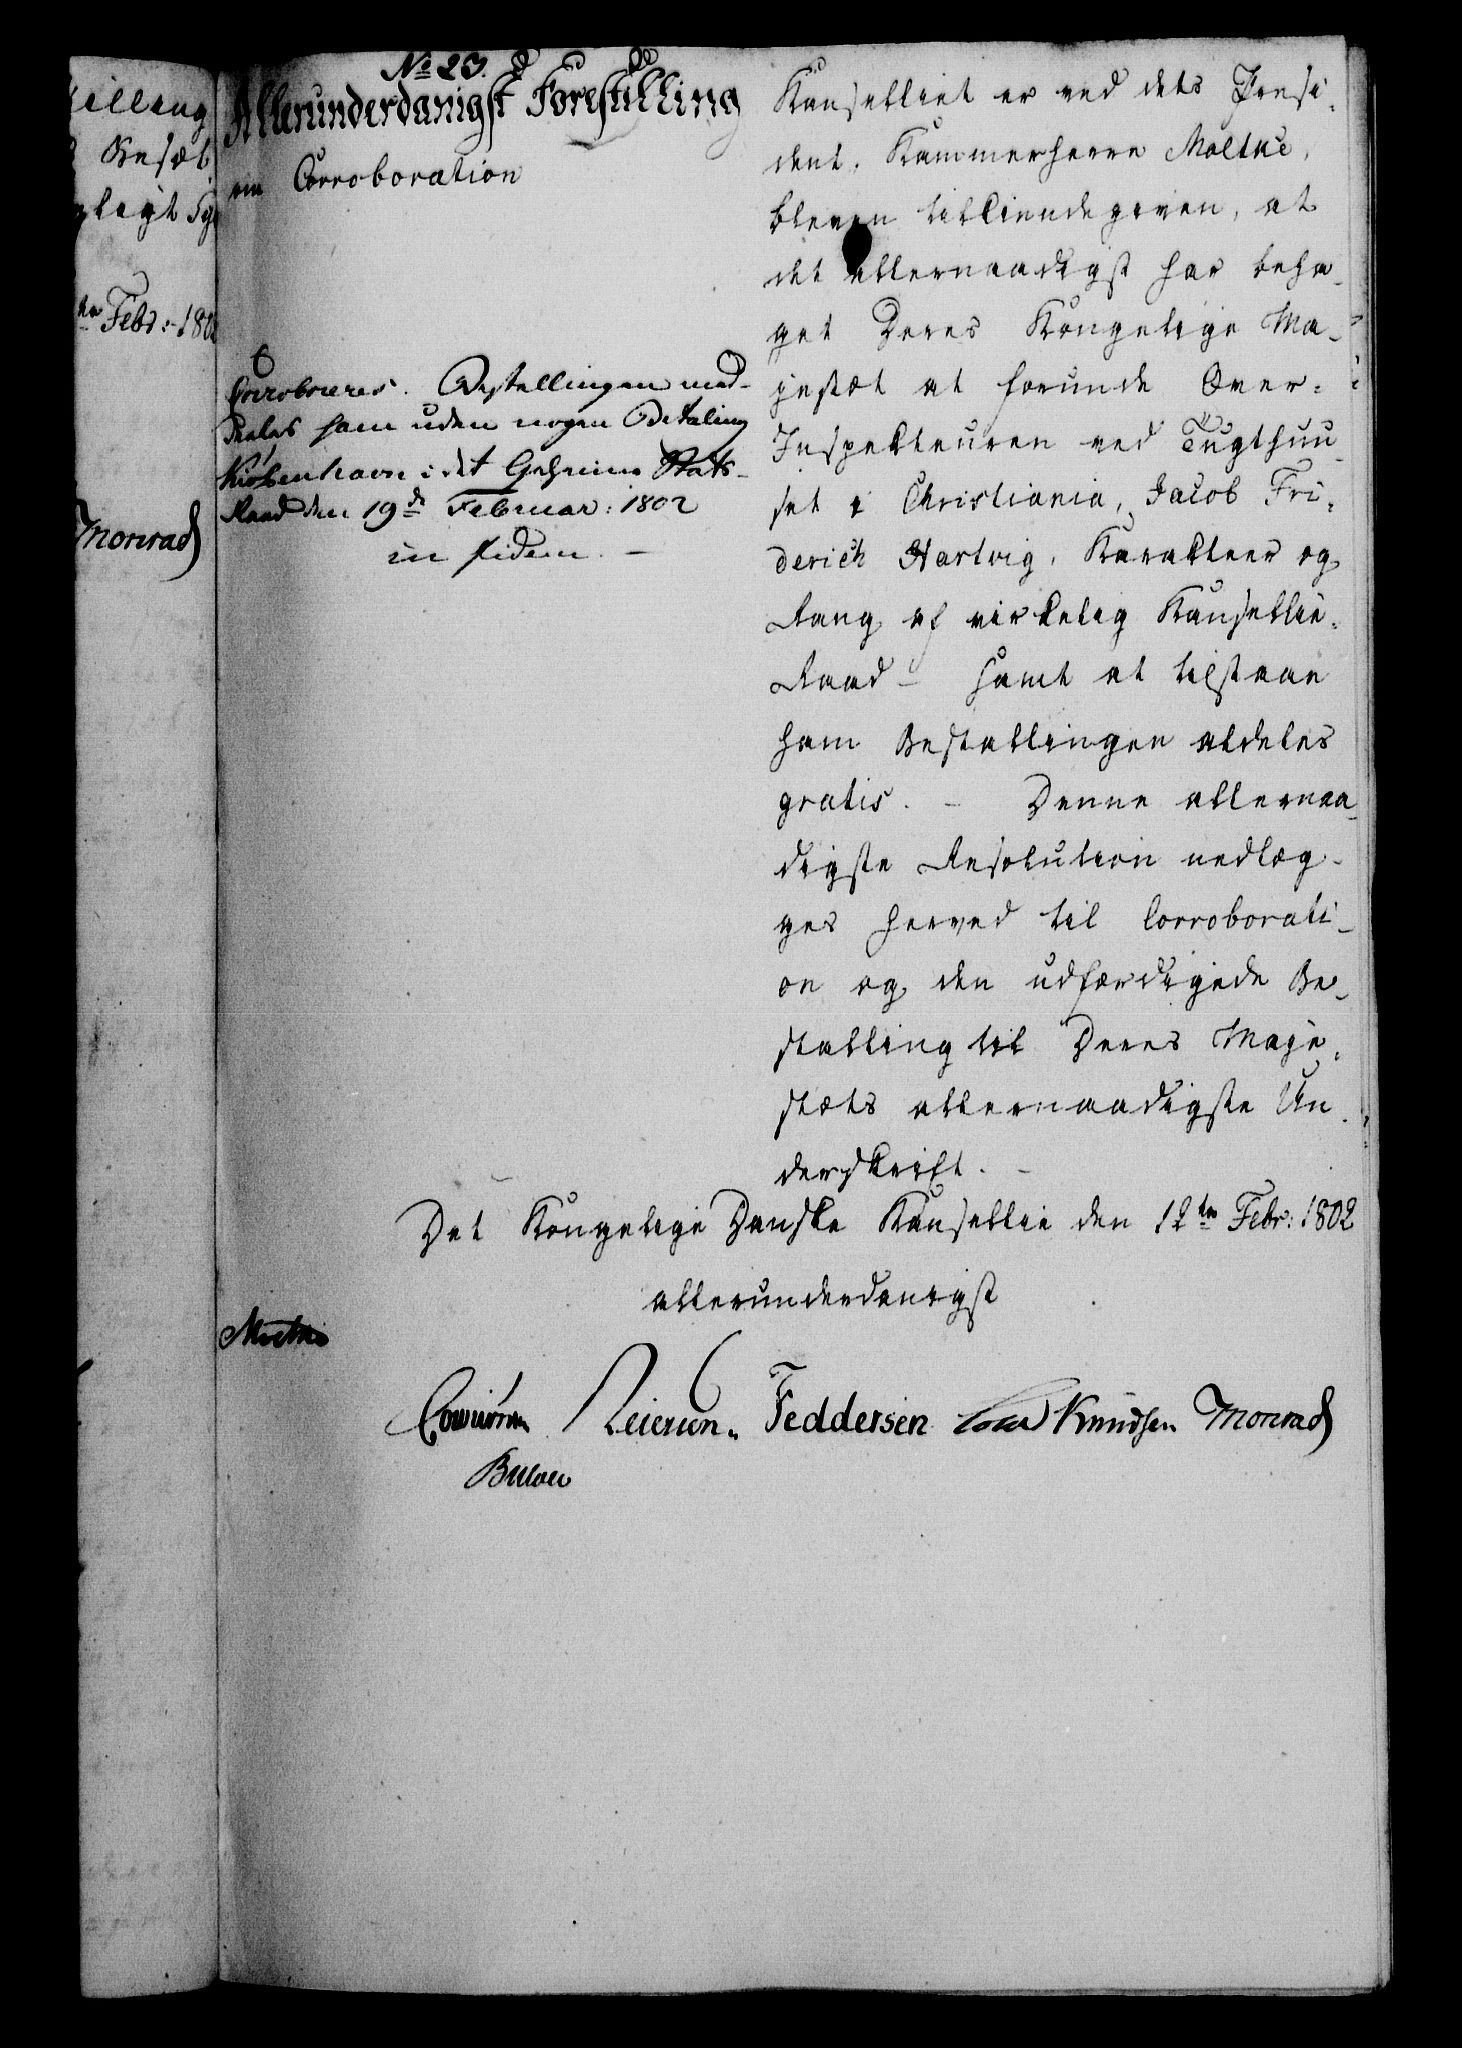 illing
Besæt
gligt Sy
ten Febr: 1802
Monrad
No 23.
Allerunderdanigst Forestilling
om Corroboration
Corroboreres. Bestallingen med-
deeles ham uden nogen Betaling
Kiøbenhavn i det Geheime Stats-
Raad den 19de Februar: 1802
in fidem. —
Moltke
Kanselliet er ved dets Præsi-
dent, Kammerherre Moltke,
bleven tilkiendegiven, at
det allernaadigst har beha-
get Deres Kongelige Ma-
jestæt at forunde Over-
Inspekteuren ved Tugthuu-
set i Christiania, Jacob Fri-
derich Hartvig, Karakteer og
Rang af virkelig Kansellie-
Raad - samt at tilstaae
ham Bestallingen aldeles
gratis. - Denne allernaa-
digste Resolution nedlæg-
ges herved til Corroborati-
on og den udfærdigede Be-
stalling til Deres Maje-
stæts allernaadigste Un-
derskrift. -
Det Kongelige Danske Kansellie den 12te Febr: 1802
allerunderdanigst
Feddersen Knudsen Monrad
Bülow